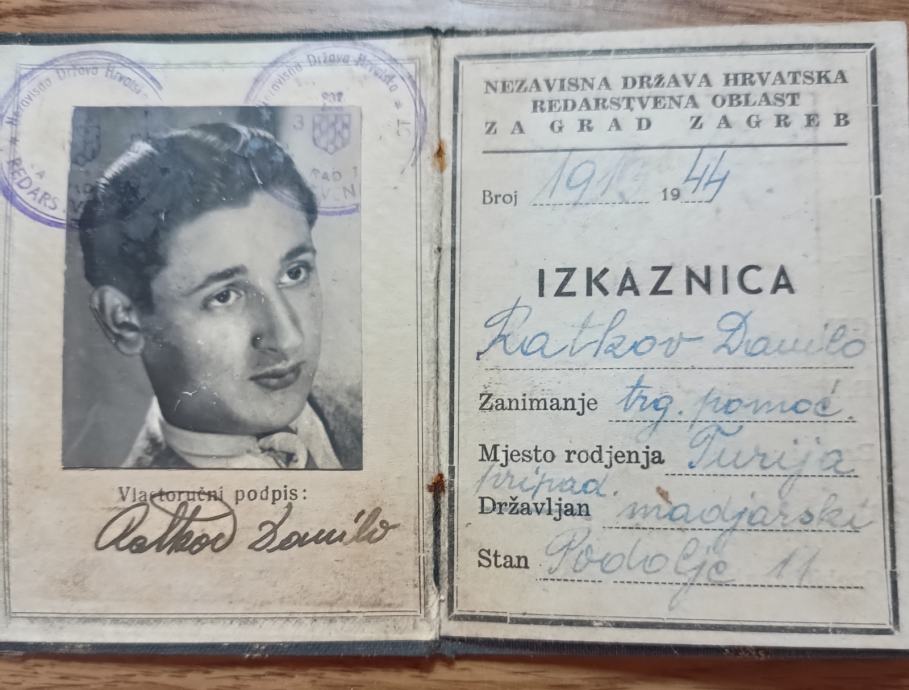 Nezavisna Država Hrvatska
REDARS
Nezavisna Država Hrvatska
Vlastoručni podpis:
Ratkov Danilo
NEZAVISNA DRŽAVA HRVATSKA
REDARSTVENA OBLAST
ZA GRAD ZAGREB
Broj 1944
IZKAZNICA
Ratkov Danilo
Zanimanje trg. pomoć.
Mjesto rodjenja Turija
pripad.
Državljan madjarski
Stan Podolje 11